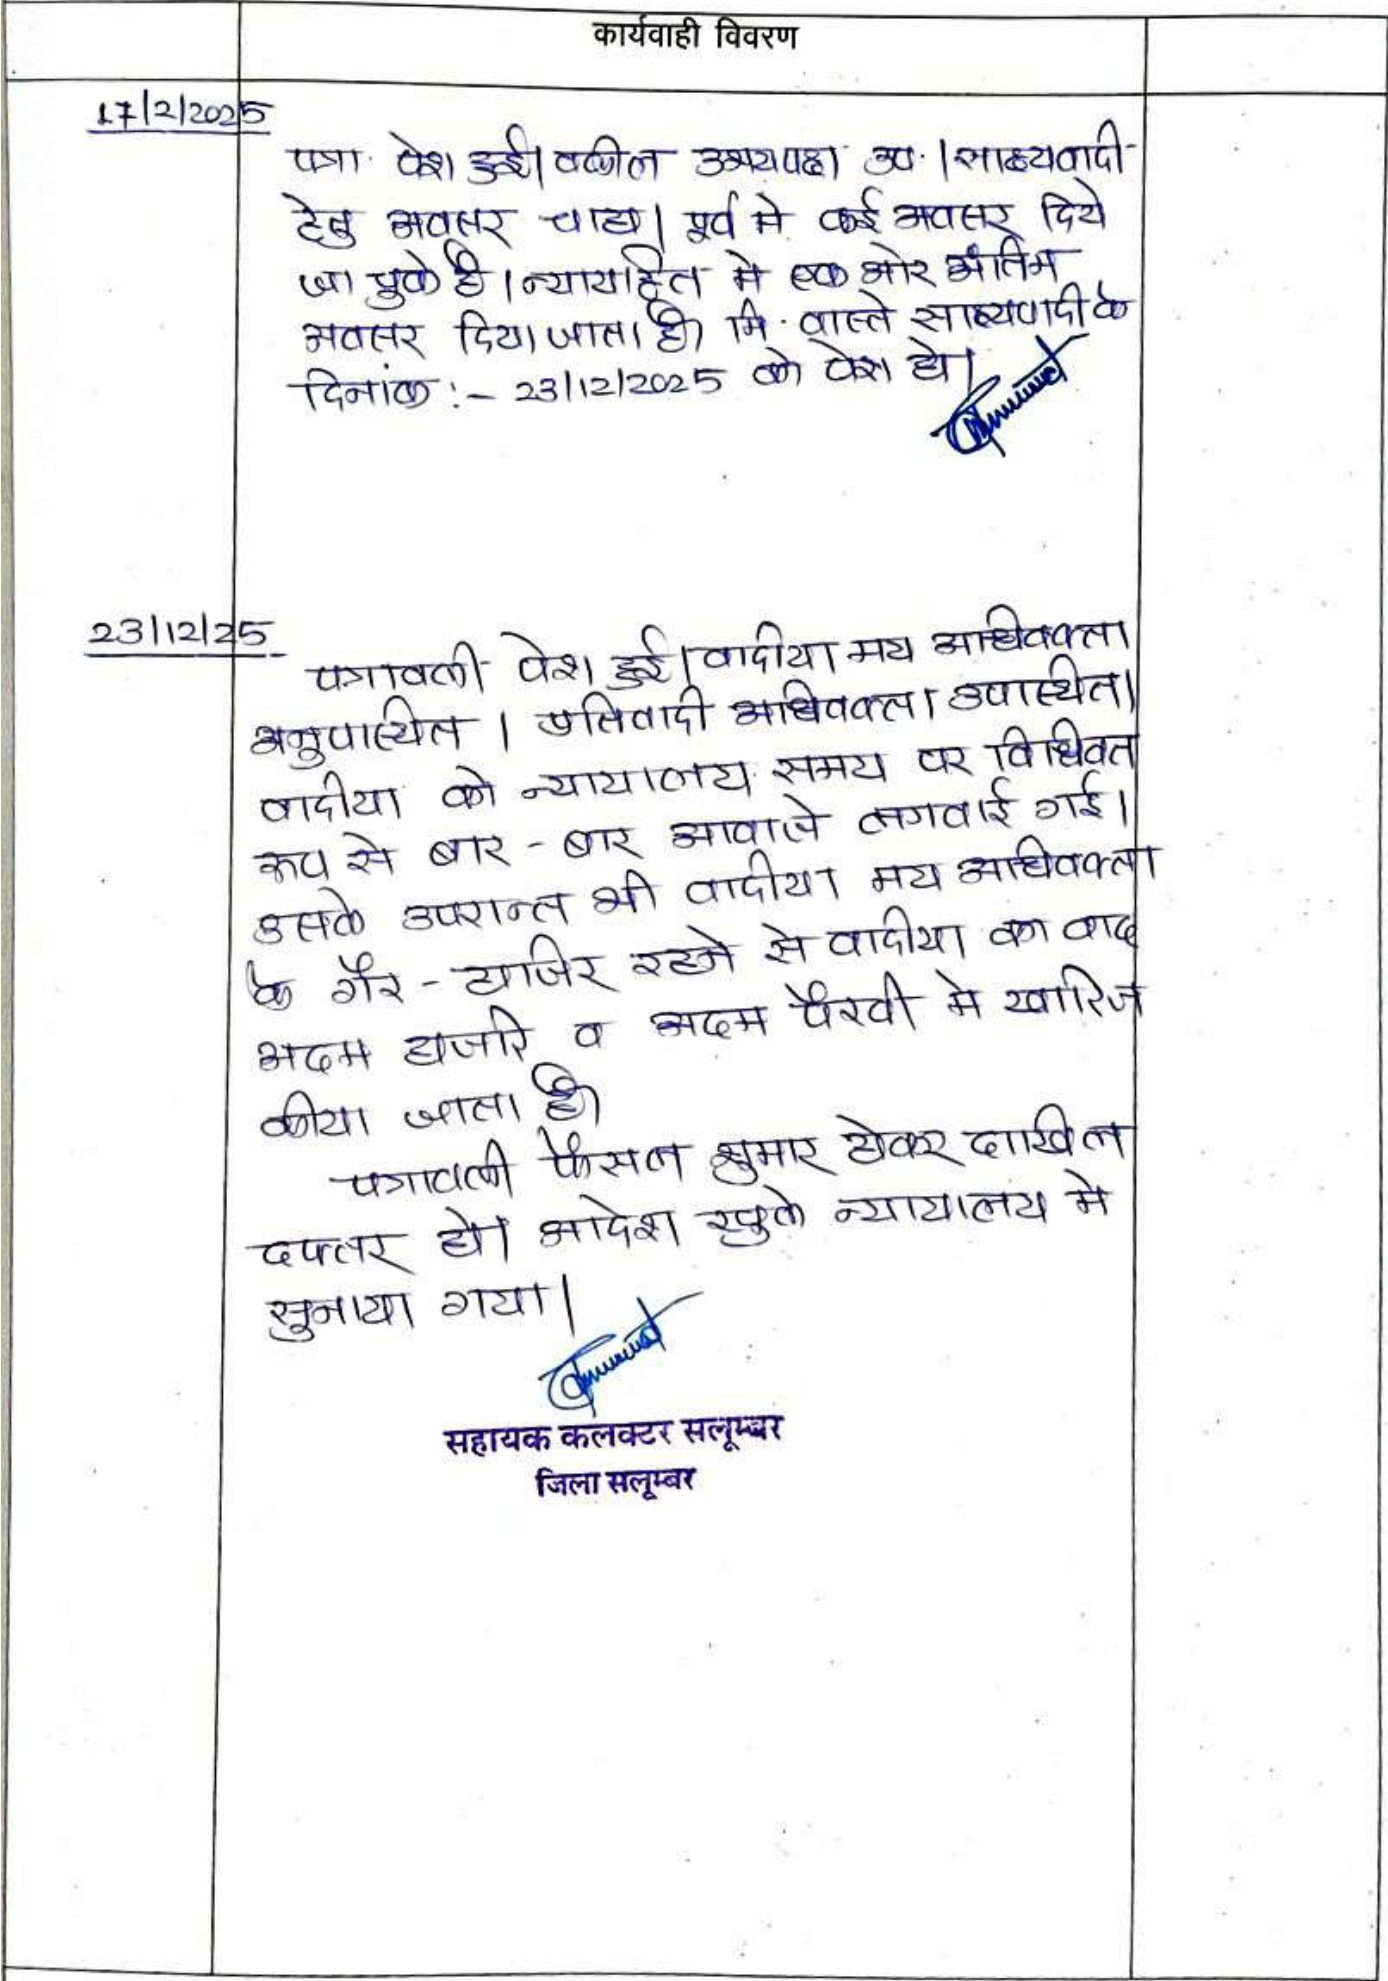 कार्यवाही विवरण
17/2/2025
पत्रा. पेश हुई। वकील उभयपक्ष उप.। साक्ष्यवादी
हेतु अवसर चाहा। पूर्व मे कई अवसर दिये
जा चुके है। न्यायहित मे एक ओर अंतिम
अवसर दिया जाता है। मि. वास्ते साक्ष्यवादी के
दिनांक :- 23/12/2025 को पेश हो।
23/12/25
पत्रावली पेश हुई। वादीया मय अधिवक्ता
अनुपास्थित। प्रतिवादी अधिवक्ता उपास्थित।
वादीया को न्यायालय समय पर विधिवत
रूप से बार-बार आवाजे लगवाई गई।
उसके उपरान्त भी वादीया मय अधिवक्ता
के गैर-हाजिर रहने से वादीया का वाद
अदम हाजरि व अदम पैरवी मे खारिज
कीया जाता है।
पत्रावली फैसल शुमार होकर दाखिल
दफ्तर हो। आदेश खुले न्यायालय मे
सुनाया गया।
सहायक कलक्टर सलूम्बर
जिला सलूम्बर